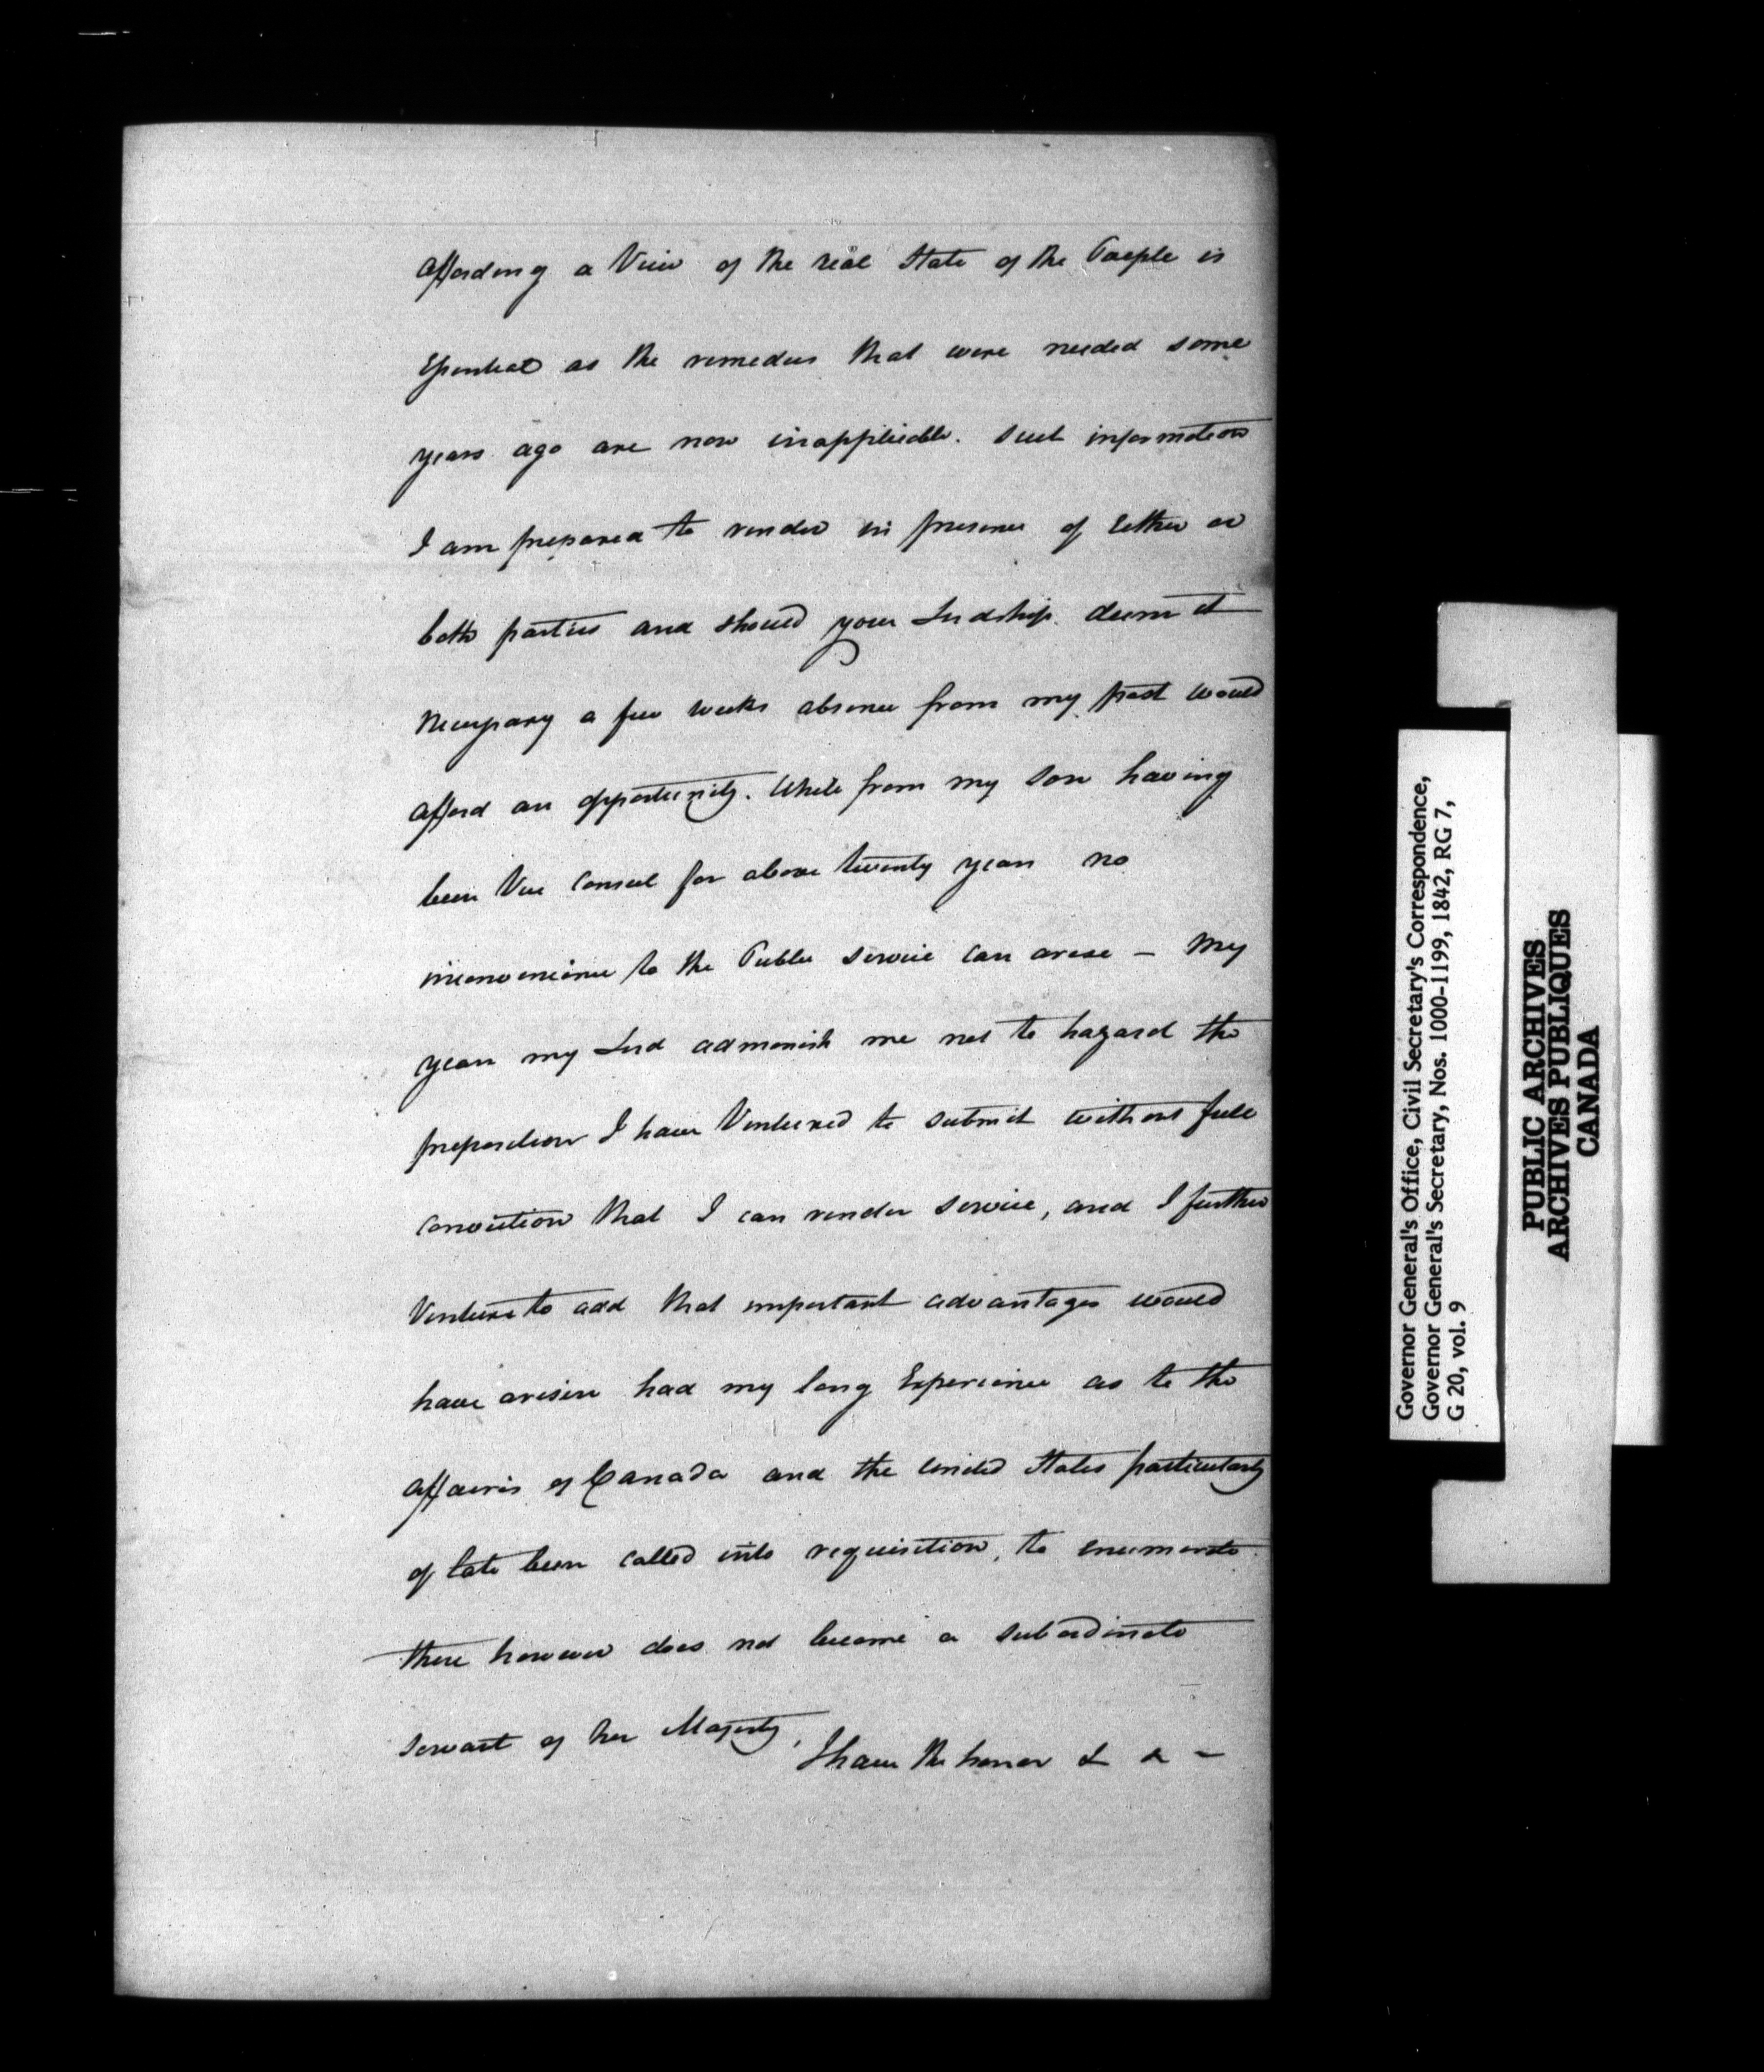 affording a View of the real State of the People is
Essential as the remedies that were needed some
years ago are now inapplicable. Such information
I am prepared to render in presence of Either or
both parties and should your Lordship deem it
Necessary a few weeks absence from my post would
afford an opportunity. While from my Son having
been Vice Consul for above twenty years no
inconvenience to the Public Service can arise — My
years my Lord admonish me not to hazard the
proposition I have Ventured to submit without full
conviction that I can render Service, and I further
Venture to add that important advantages would
have arisen had my long Experience as to the
affairs of Canada and the United States particularly
of late been called into requisition, to enumerate
these however does not become a subordinate
servant of her Majesty,
I have the honor & & —
Governor General's Office, Civil Secretary's Correspondence,
Governor General's Secretary, Nos. 1000-1199, 1842, RG 7,
G 20, vol. 9
PUBLIC ARCHIVES
ARCHIVES PUBLIQUES
CANADA